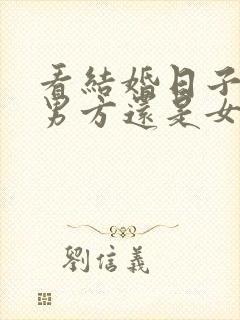 看結婚日子
男方還是女
劉信義